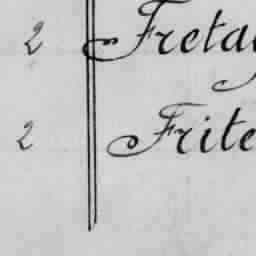 2 Freta
2 Frite